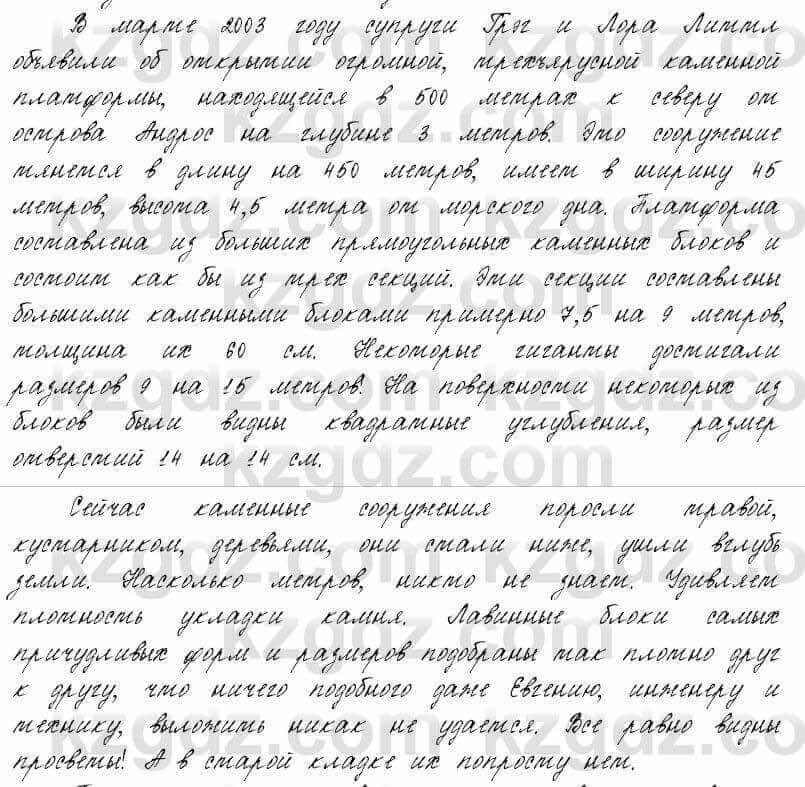 В марте 2003 году супруги Грэг и Лора Литтл
объявили об открытии огромной, трехъярусной каменной
платформы, находящейся в 500 метрах к северу от
острова Андрос на глубине 3 метров. Это сооружение
тянется в длину на 450 метров, имеет в ширину 45
метров, высота 4,5 метра от морского дна. Платформа
составлена из больших прямоугольных каменных блоков и
состоит как бы из трех секций. Эти секции составлены
большими каменными блоками примерно 7,5 на 9 метров,
толщина их 60 см. Некоторые гиганты достигали
размеров 9 на 15 метров. На поверхности некоторых из
блоков были видны квадратные углубления, размер
отверстий 14 на 14 см.
Сейчас каменные сооружения поросли травой,
кустарником, деревьями, они стали ниже, ушли вглубь
земли. Насколько метров, никто не знает. Удивляет
плотность укладки камня. Лавинные блоки самых
причудливых форм и размеров подобраны так плотно друг
к другу, что ничего подобного даже Евгению, инженеру и
технику, выложить никак не удается. Все равно видны
просветы! А в старой кладке их попросту нет.
kzgdz.com